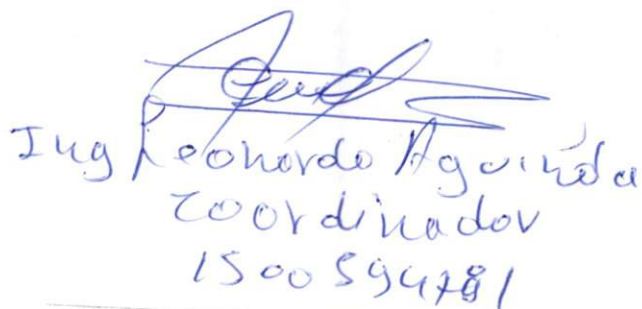 Ing Leonardo Aguinda
Coordinador
1500594781